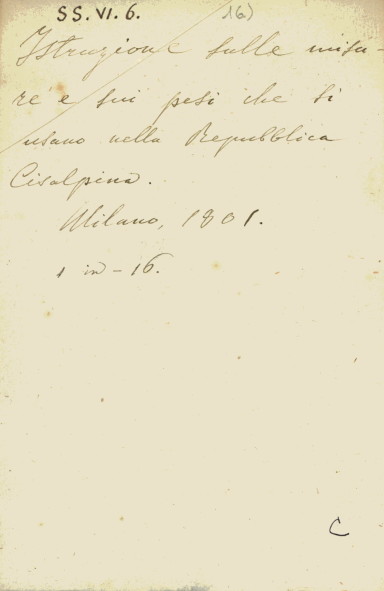 SS. VI. 6. 16)
Istruzione sulle misu-
re e sui pesi che si
usano nella Repubblica
Cisalpina.
Milano, 1801.
1 in-16.
C